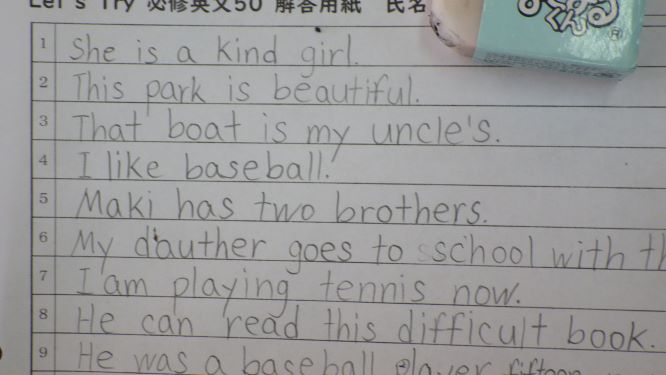 Let's Try 必修英文50 解答用紙 氏名
1 She is a kind girl.
2 This park is beautiful.
3 That boat is my uncle's.
4 I like baseball.
5 Maki has two brothers.
6 My dauther goes to school with
7 I am playing tennis now.
8 He can read this difficult book.
9 He was a baseball player fifteen